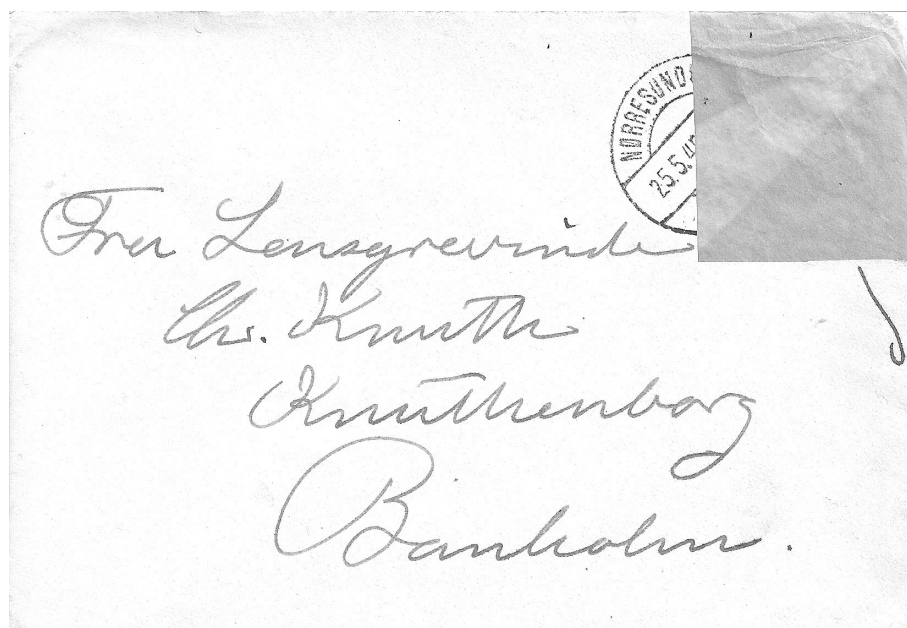 NØRRESUND
25.5.4
Fru Lensgrevinde
Chr. Knuth
Knuthenborg
Bandholm.